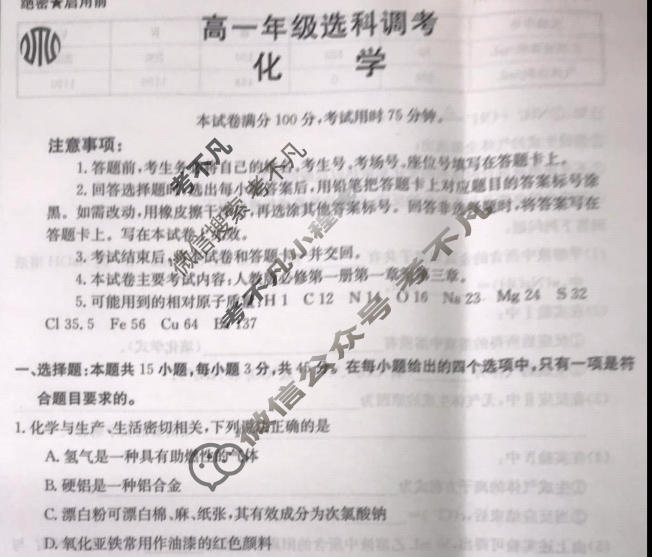 绝密★启用前
高一年级选科调考
化 学
本试卷满分100分,考试用时75分钟。
注意事项:
1. 答题前,考生务 将自己的 考生号、考场号、座位号填写在答题卡上。
2. 回答选择题时 选出每小 答案后,用铅笔把答题卡上对应题目的答案标号涂
黑。如需改动,用橡皮擦干 ,再选涂其他答案标号。回答非选择题时,将答案写在
答题卡上。写在本试卷 无效。
3. 考试结束后, 试卷和答题 并交回。
4. 本试卷主要考试内容:人教 必修第一册第一章 第三章。
5. 可能用到的相对原子质 H 1 C 12 N 14 O 16 Na 23 Mg 24 S 32
Cl 35.5 Fe 56 Cu 64 137
一、选择题:本题共15小题,每小题3分,共45分。在每小题给出的四个选项中,只有一项是符
合题目要求的。
1. 化学与生产、生活密切相关,下列说法正确的是
A. 氢气是一种具有助燃性的气体
B. 硬铝是一种铝合金
C. 漂白粉可漂白棉、麻、纸张,其有效成分为次氯酸钠
D. 氧化亚铁常用作油漆的红色颜料
考不凡
微信搜索 考不凡
考不凡小程
微信公众号 考不凡